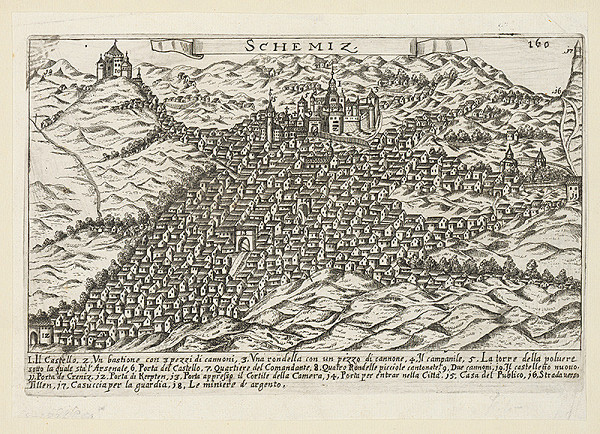 SCHEMIZ.
160
17
16
18
1. Il Castello, 2. Vn bastione con 3 pezzi di cannoni, 3. Vna rondella con un pezzo di cannone, 4. Il campanile, 5. La torre della poluere
sotto la quale sta l'Arsenale, 6. Porta del Castello, 7. Quartiere del Comandante, 8. Quatro Rondelle picciole cantonate, 9. Due cannoni, 10. Il castelletto nuouo
11. Porta de Cremiz, 12. Porta di Krepten, 13. Porta appresso il Cortile della Camera, 14. Porta per entrar nella Città, 15. Casa del Publico, 16. Strada uerso
Tillen, 17. Casuccia per la guardia, 18, Le miniere d'argento,